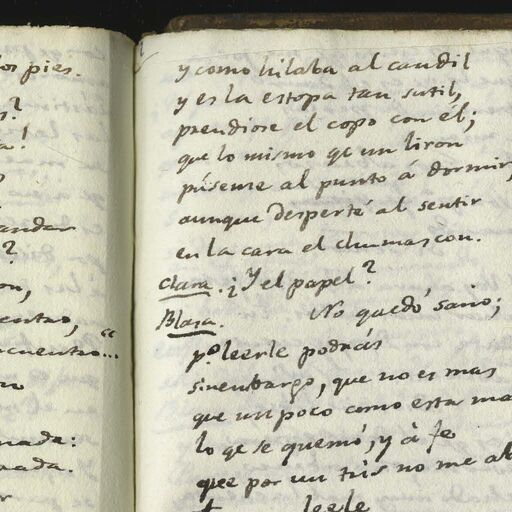 os pies.
s?
a!
andar
?
on,
entro,
cuentro..."
ro
nada:
nada.
y como hilaba al candil
y es la estopa tan sutil,
prendiose el copo con él;
que lo mismo qe un liron
púseme al punto á dormir,
aunque desperté al sentir
en la cara el chumascon.
Clara. ¿Y el papel?
Blasa. No quedó sano;
po. leerle podrás
sinenbargo, que no es mas
que un poco como esta ma
lo qe se quemó, y á fe
que por un tris no me ab
leerle